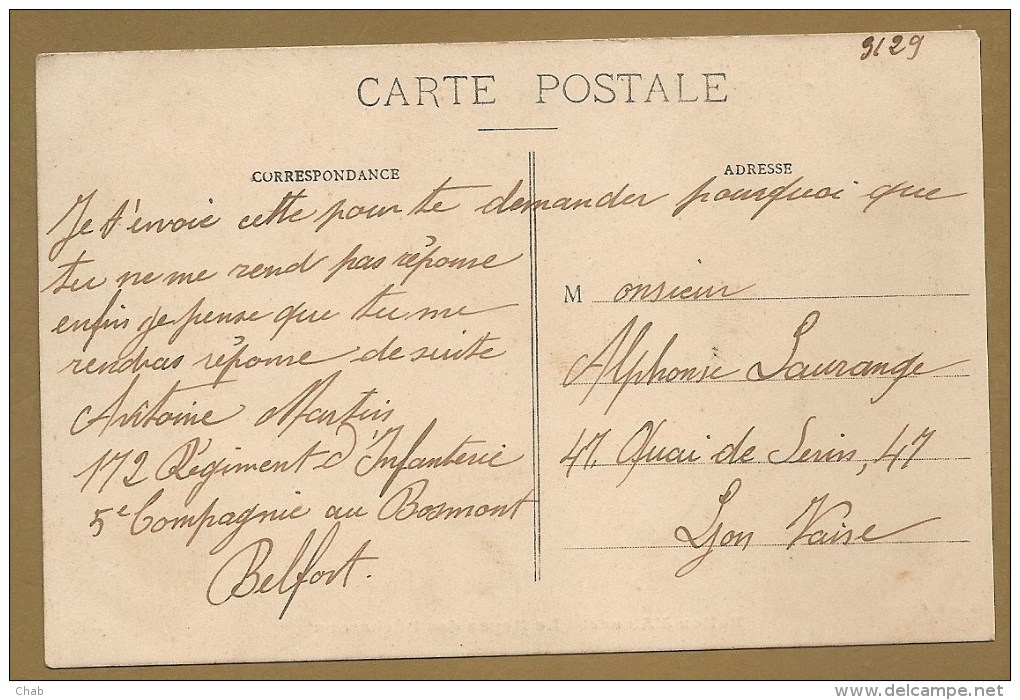 9129
CARTE POSTALE
CORRESPONDANCE
ADRESSE
Je t'envoie cette pour te demander pourquoi que
tu ne me rend pas réponse
enfin je pense que tu me
rendras réponse de suite
Antoine Martin
172 Régiment d'Infanterie
5e Compagnie au Bosmont
Belfort.
Monsieur
Alphonse Laurange
47. Quai de Serin, 47
Lyon Vaise
Chab
www.delcampe.net